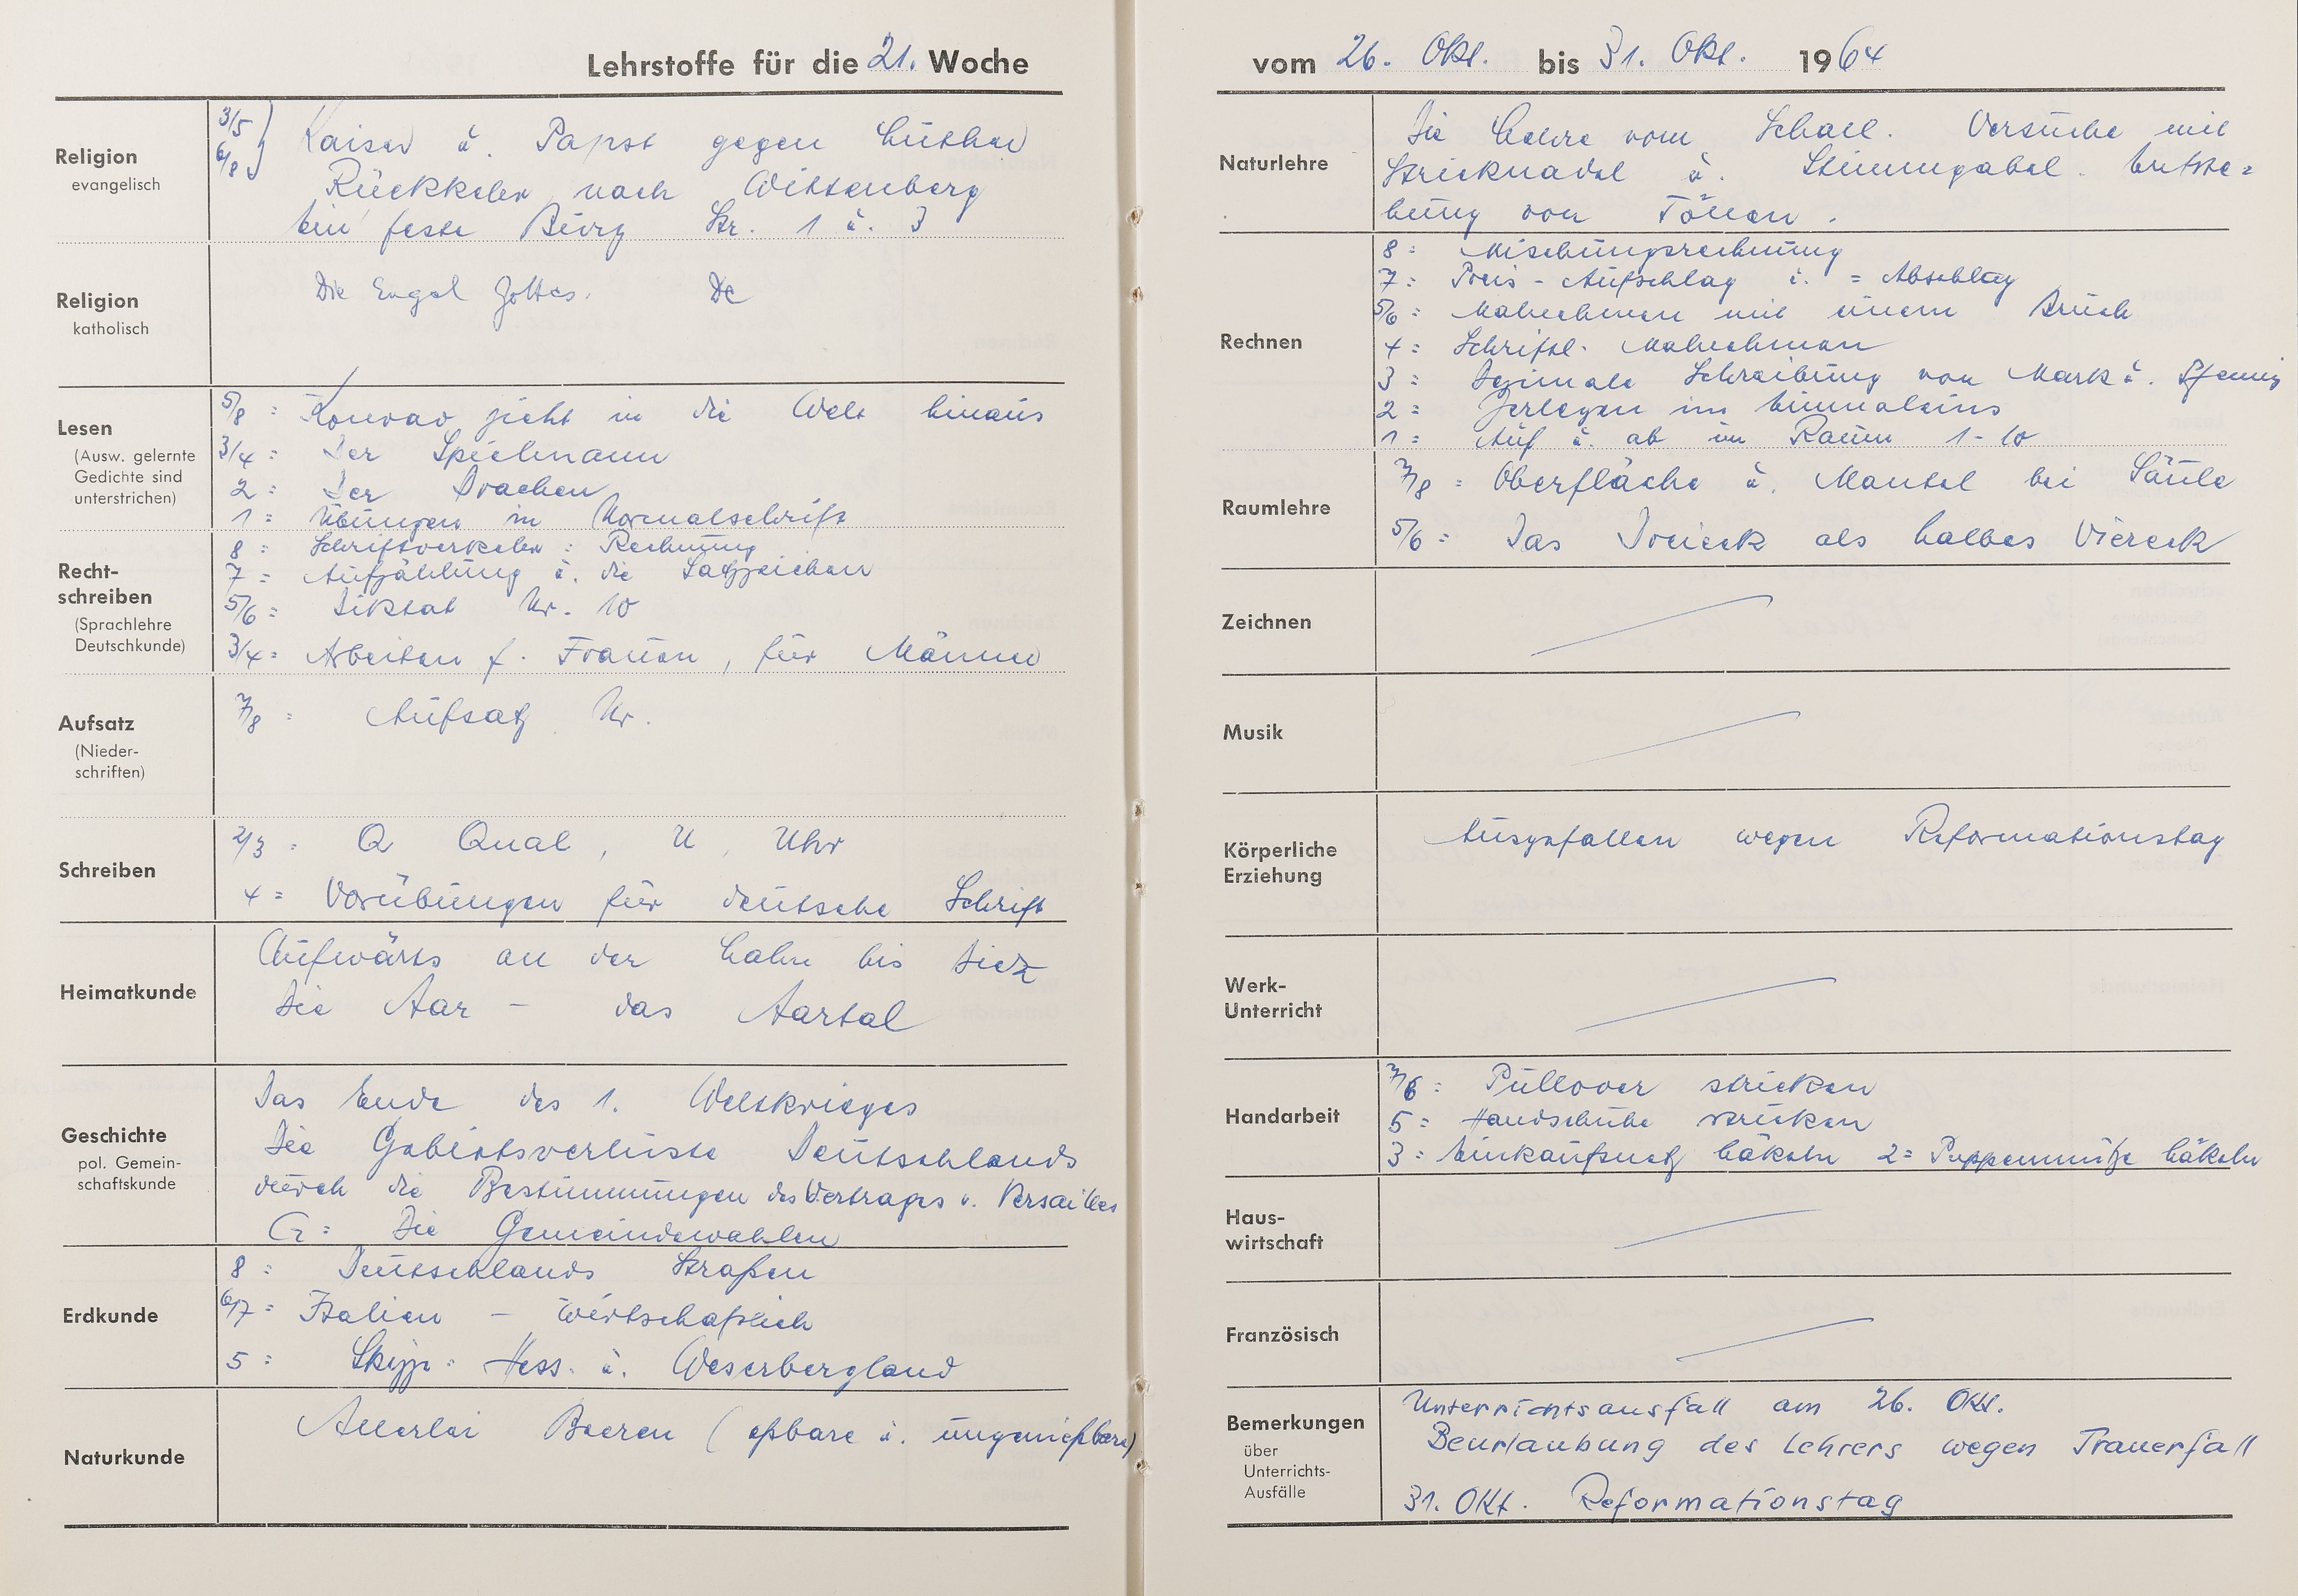 Lehrstoffe für die 21. Woche
Religion
evangelisch
3/5
6/8
Kaiser u. Papst gegen Luther
Rückkehr nach Wittenberg
Ein feste Burg Str. 1 u. 3
Religion
katholisch
Die Engel Gottes.
Lesen
(Ausw. gelernte
Gedichte sind
unterstrichen)
5/8 = Konrad zieht in die Welt hinaus
3/4 = Der Spielmann
2 = Der Drachen
1 = Übungen in Normalschrift
Recht-
schreiben
(Sprachlehre
Deutschkunde)
8 = Schriftverkehr: Rechnung
7 = Aufzählung u. die Satzzeichen
5/6 = Diktat Nr. 10
3/4 = Arbeiten f. Frauen, für Männer
Aufsatz
(Nieder-
schriften)
7/8 = Aufsatz Nr.
Schreiben
2/3 = Q Qual, U, Uhr
4 = Vorübungen für deutsche Schrift
Heimatkunde
Aufwärts an der Lahn bis Diez
Die Aar - das Aartal
Geschichte
pol. Gemein-
schaftskunde
Das Ende des 1. Weltkrieges
Die Gebietsverluste Deutschlands
durch die Bestimmungen des Vertrages v. Versailles
G = Die Gemeindewahlen
Erdkunde
8 = Deutschlands Straßen
6/7 = Italien - wirtschaftlich
5 = Skizz. Hess. u. Weserbergland
Naturkunde
Allerlei Beeren (eßbare u. ungenießbare)
vom 26. Okt. bis 31. Okt. 1964
Naturlehre
Die Lehre vom Schall. Versuche mit
Stricknadel u. Stimmgabel. Entste=
hung von Tönen.
Rechnen
8 = Mischungsrechnung
7 = Preis-Aufschlag u. = Abschlag
5/6 = Malnehmen mit einem Bruch
4 = Schriftl. Malnehmen
3 = Dezimale Schreibung von Mark u. Pfennig
2 = Zerlegen im Einmaleins
1 = Auf u. ab im Raum 1-10
Raumlehre
7/8 = Oberfläche u. Mantel bei Säule
5/6 = Das Dreieck als halbes Viereck
Zeichnen
Musik
Körperliche
Erziehung
Ausgefallen wegen Reformationstag
Werk-
Unterricht
Handarbeit
7/6 = Pullover stricken
5 = Handschuhe stricken
3 = Einkaufsnetz häkeln 2 = Puppenmütze häkeln
Haus-
wirtschaft
Französisch
Bemerkungen
über
Unterrichts-
Ausfälle
Unterrichtsausfall am 26. Okt.
Beurlaubung des Lehrers wegen Trauerfall
31. Okt. Reformationstag